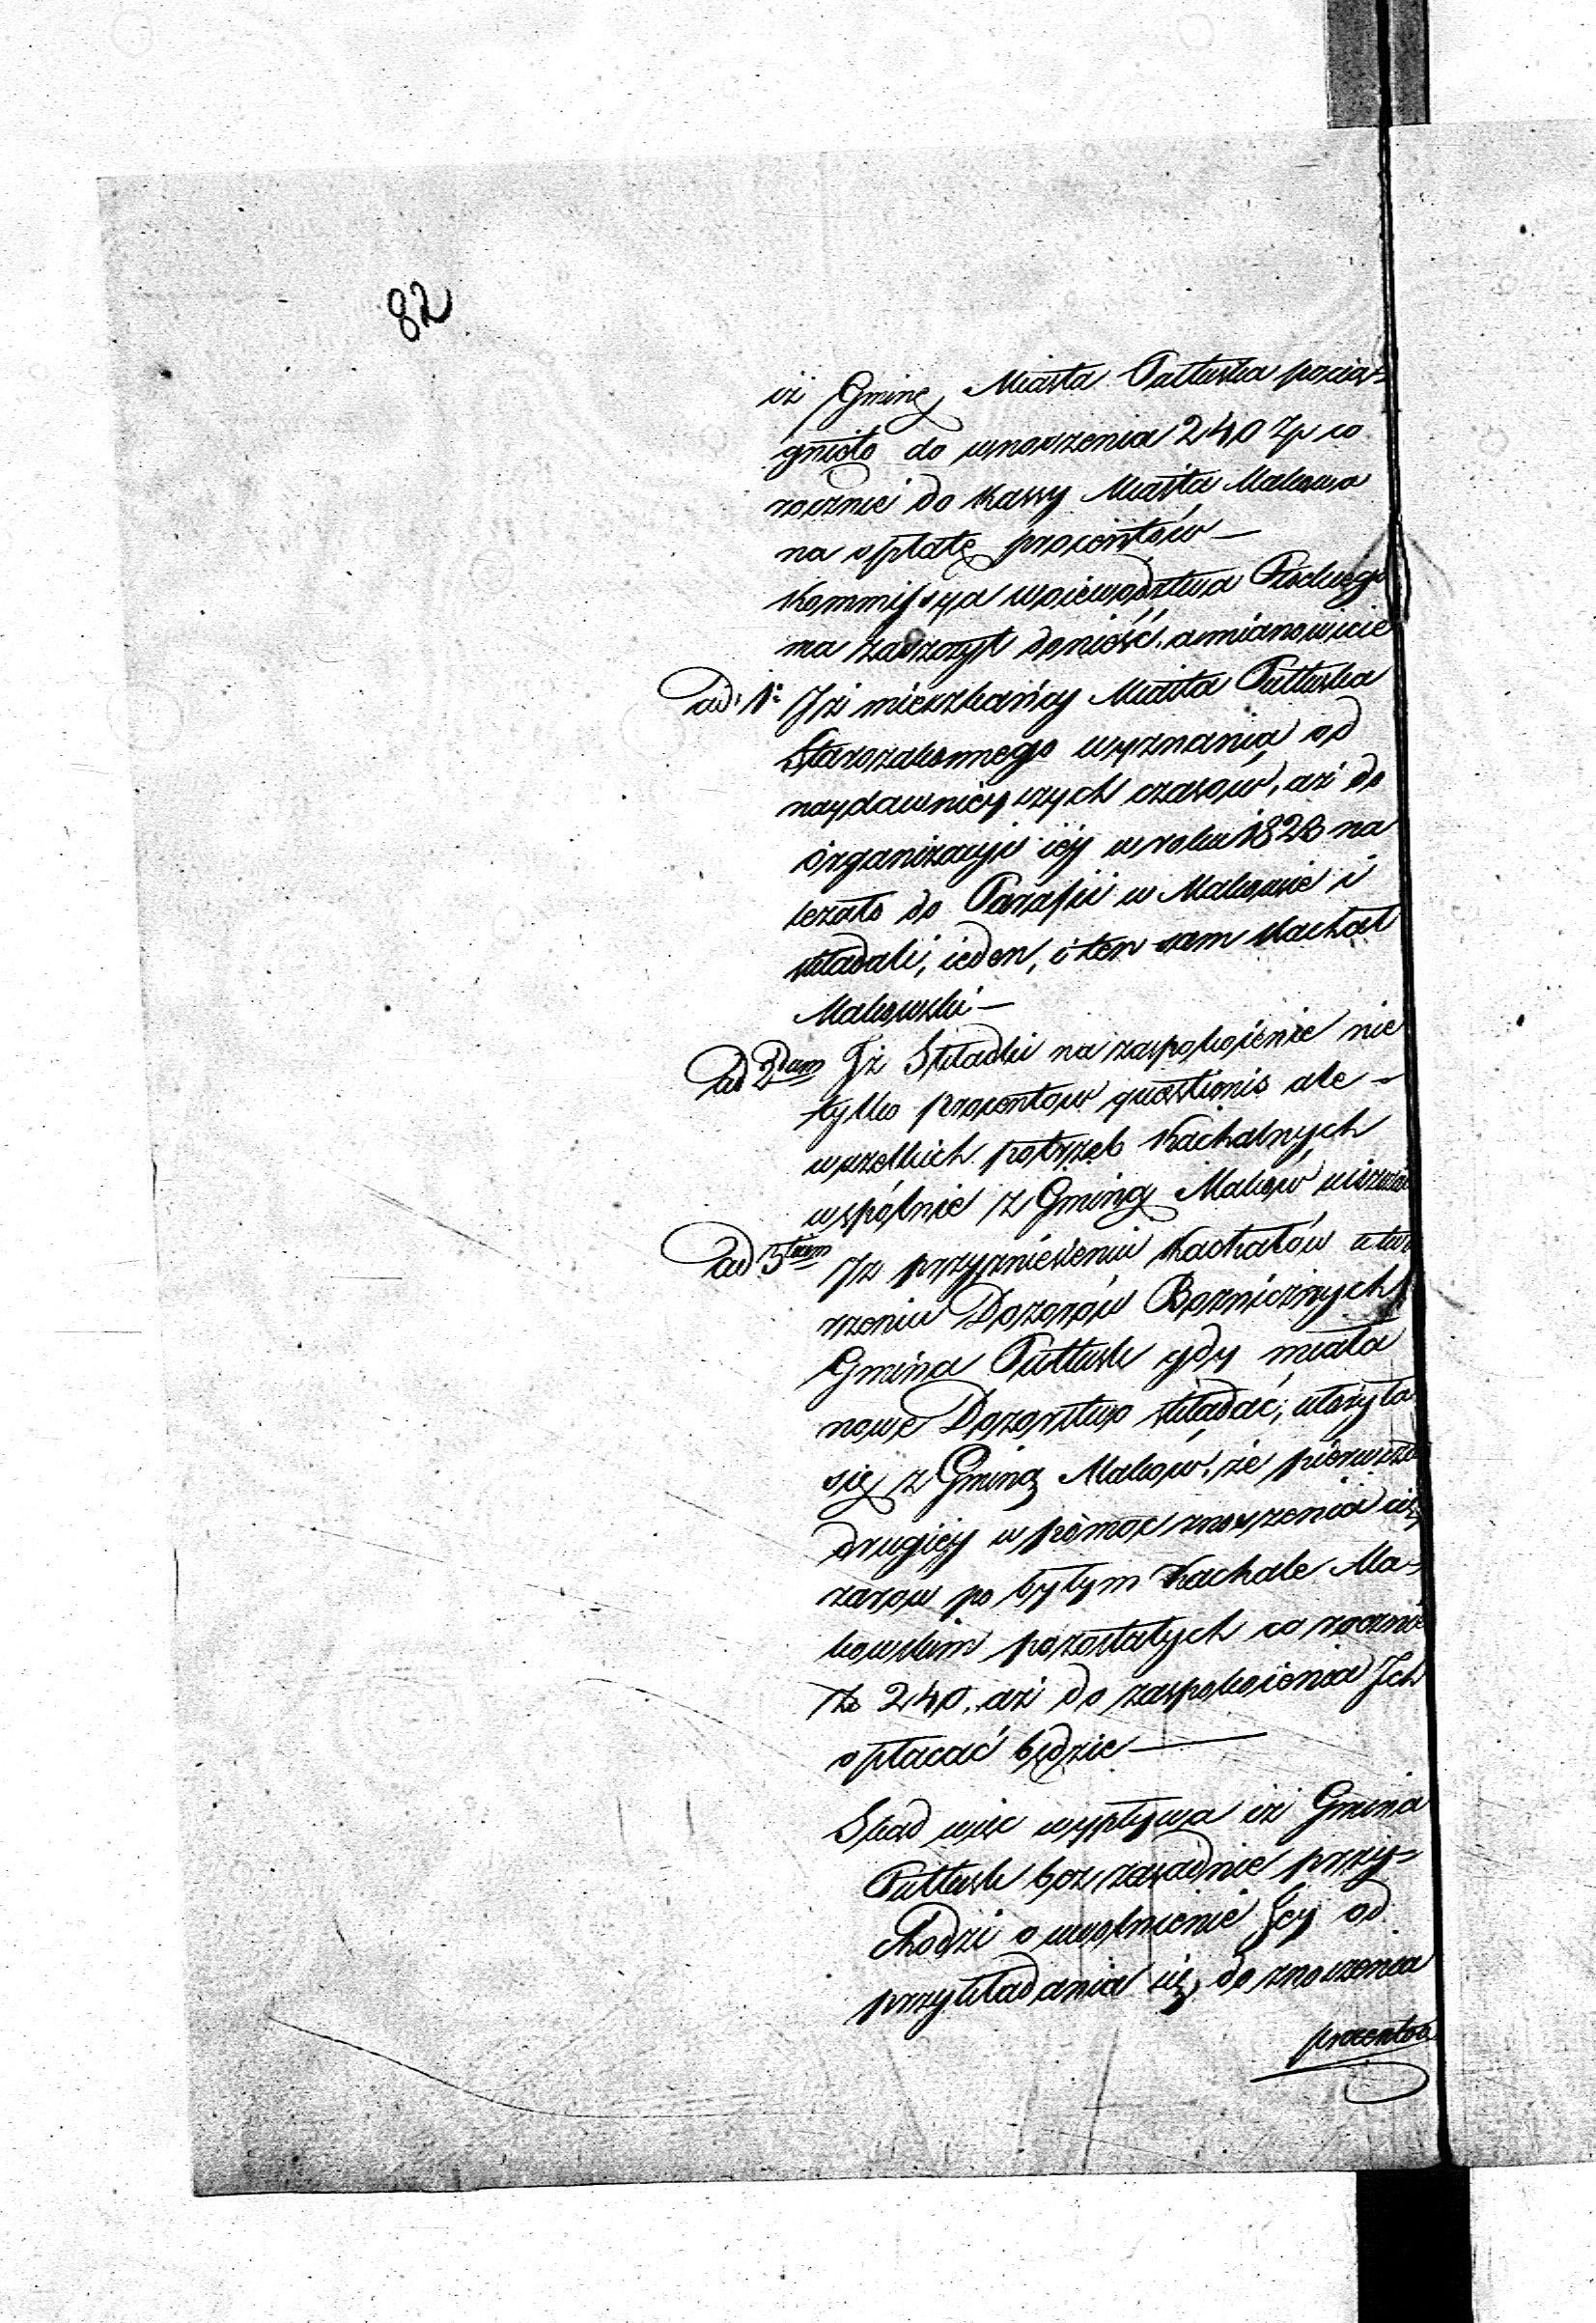 82
iż Gminę Miasta Pułtuska pocią=
gnięto do wnoszenia 240 Zp co
rocznie do Kassy Miasta Makowa
na opłatę procentów —
Kommissya Woiewództwa Płockiego
ma zaszczyt donieść, a mianowicie
ad 1º Iż mieszkańcy Miasta Pułtuska
Starozakonnego wyznania od
naydawnieyszych czasów, aż do
organizacyi iey w roku 1823 na
leżało do Parafii w Makowie i
składali, ieden, i ten sam Kachał
Makowski —
ad 2dum Iż Składki na zaspokoienie nie
tylko procentow questionis ale —
wszelkich potrzeb Kachalnych
wspólnie z Gminą Maków
ad 3tium Iż przy zniesieniu Kachałów utwo
rzeniu Dozorów Boznicznych
Gmina Pułtusk gdy miała
nowe Dozorstwo składać, ułożyła
się z Gminą Maków, że pierwsza
drugiey w pomoc znoszenia cię
żarow po byłym Kachale Ma=
kowskim pozostałych co rocznie
Zł 240. aż do zaspokoienia Ich
opłacać będzie —
Skąd więc wypływa iż Gmina
Pułtusk bez zasadnie przy=
chodzi o uwolnienie Jey od
przykładania się do znoszenia
procentów